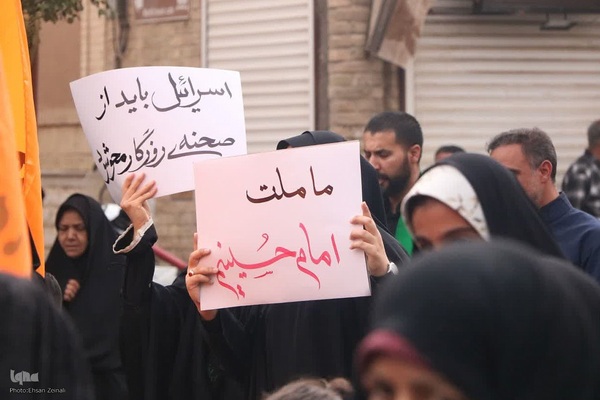 اسرائیل باید از
صحنه‌ی روزگار محو شود
ما ملت
امام حسینیم
Photo:Ehsan Zeinali